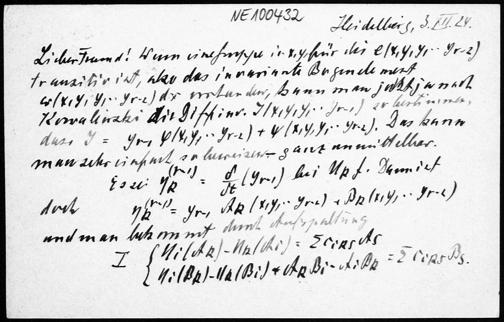 NE100432
Heidelberg, 3. VII. 24.
Lieber Freund! Wenn eine Gruppe in x, y für die e(x, y, y₁ ·· yr-2)
transitiv ist, also das invariante Bogenelement
ω(x, y, y₁ ·· yr-2) dx vorhanden, kann man jetzt ja nach
Kowalewski die Diffinv. J(x, y, y₁ ·· yr-1) so bestimmen,
dass J = yr-1 φ(x, y, y₁ ·· yr-2) + ψ(x, y, y₁ ·· yr-2). Das kann
man sehr einfach so beweisen – ganz unmittelbar.
Es sei η_k^(r-1) = δ/δt (yr-1) bei U_k f. Dann ist
doch η_k^(r-1) = yr-1 A_k(x, y, y₁ ·· yr-2) + B_k(x, y, y₁ ·· yr-2)
und man bekommt durch Aufspaltung
I { U_i(A_k) – U_k(A_i) = Σ c_iks A_s
U_i(B_k) – U_k(B_i) + A_k B_i – A_i B_k = Σ c_iks B_s.